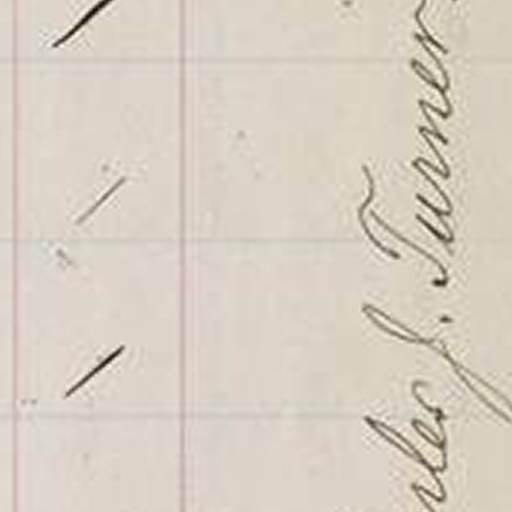 rles J. Turner